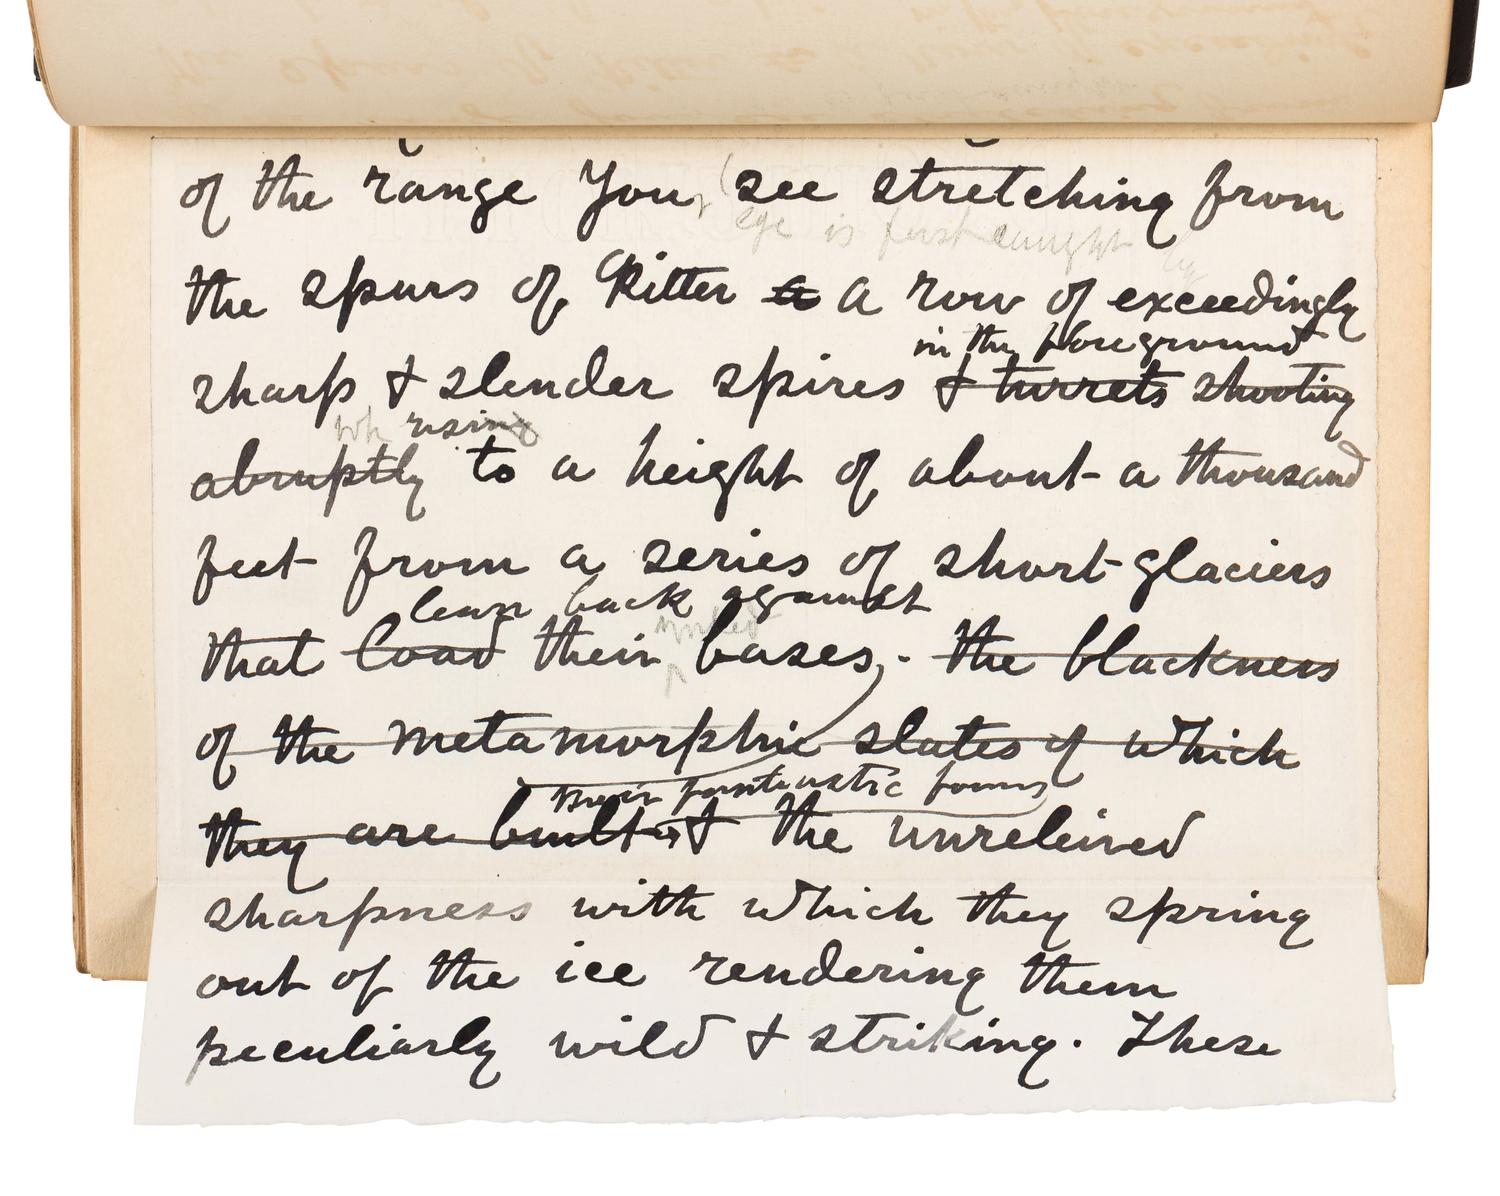 of the range You, see stretching from
eye is first caught by
the spurs of Ritter a a row of exceedingly
in the foreground
sharp & slender spires & turrets shooting
rising
abruptly to a height of about a thousand
feet from a series of short glaciers
lean back against
that load their bases, . the blackness
of the metamorphic slates of which
their fantastic forms
they are built & the unreleived
sharpness with which they spring
out of the ice rendering them
peculiarly wild & striking. These